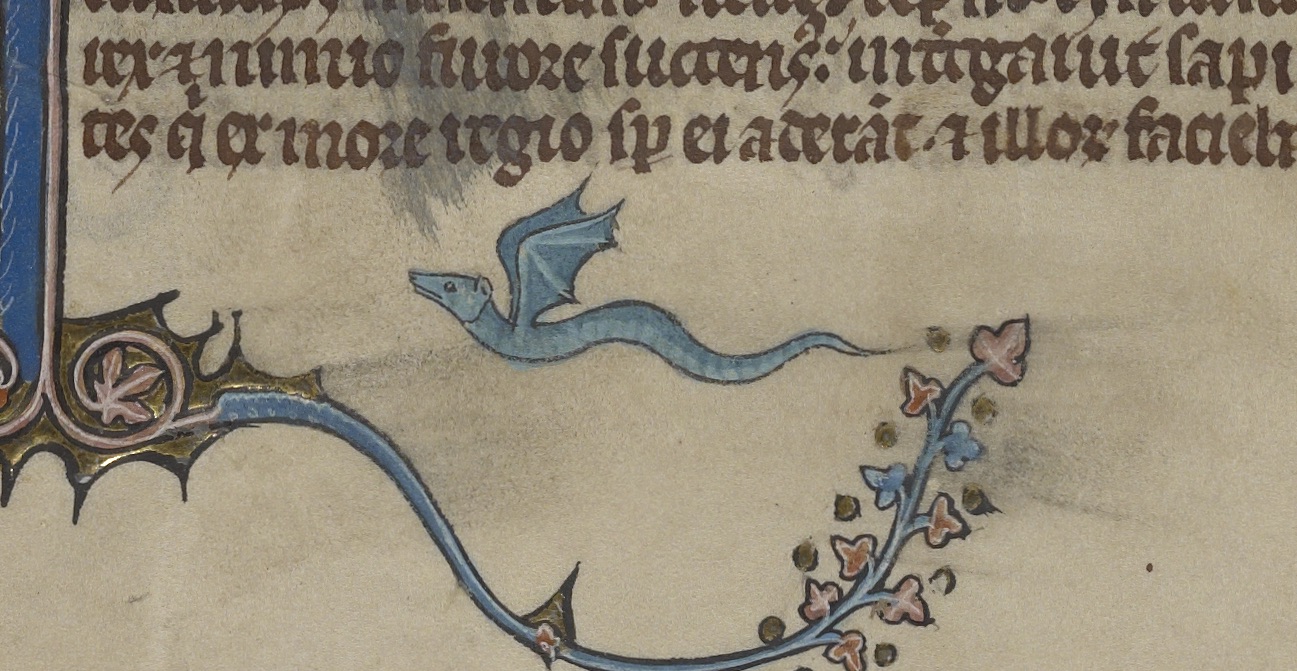 rex ⁊ nimio furore succens᷒: int̃rogauit sapi
tes q̇ ex more regio sp̱ ei aderãt ⁊ illoꝝ facieb